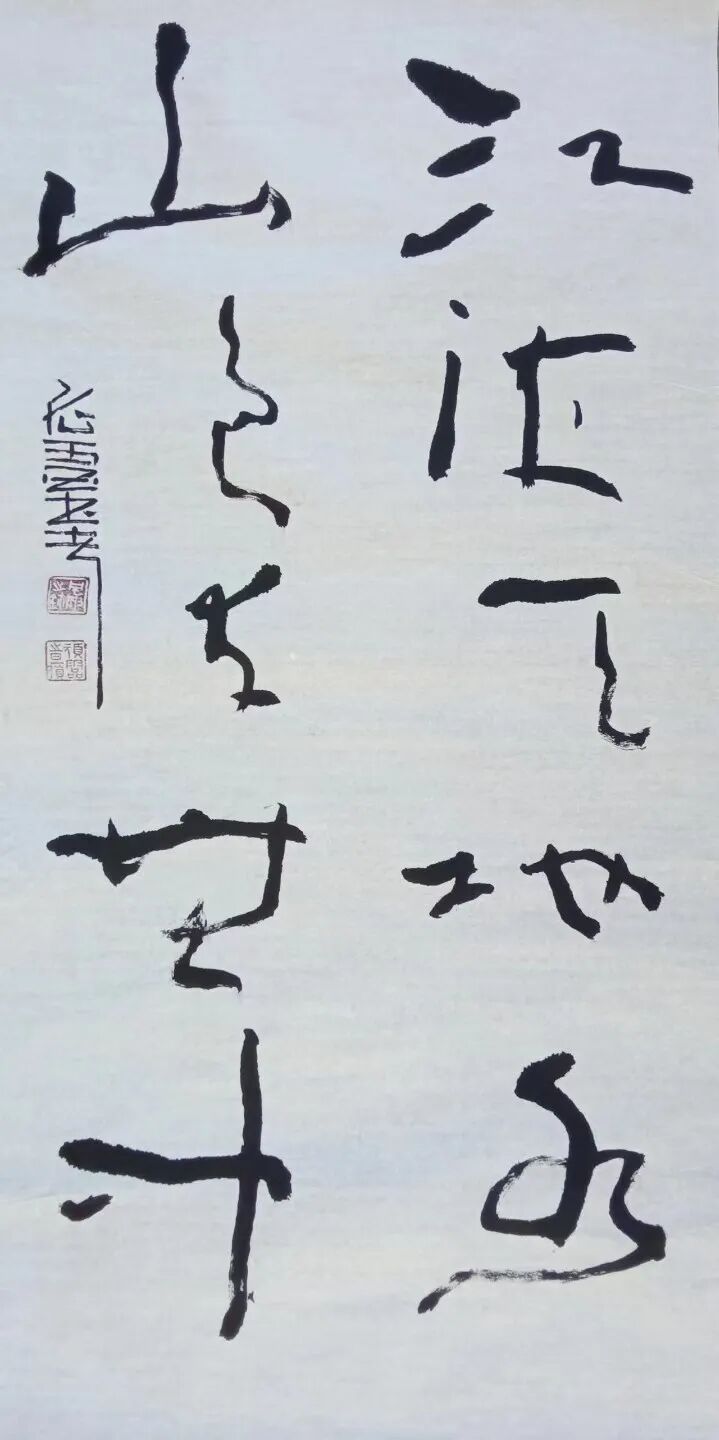 江流天地外
山色有无中